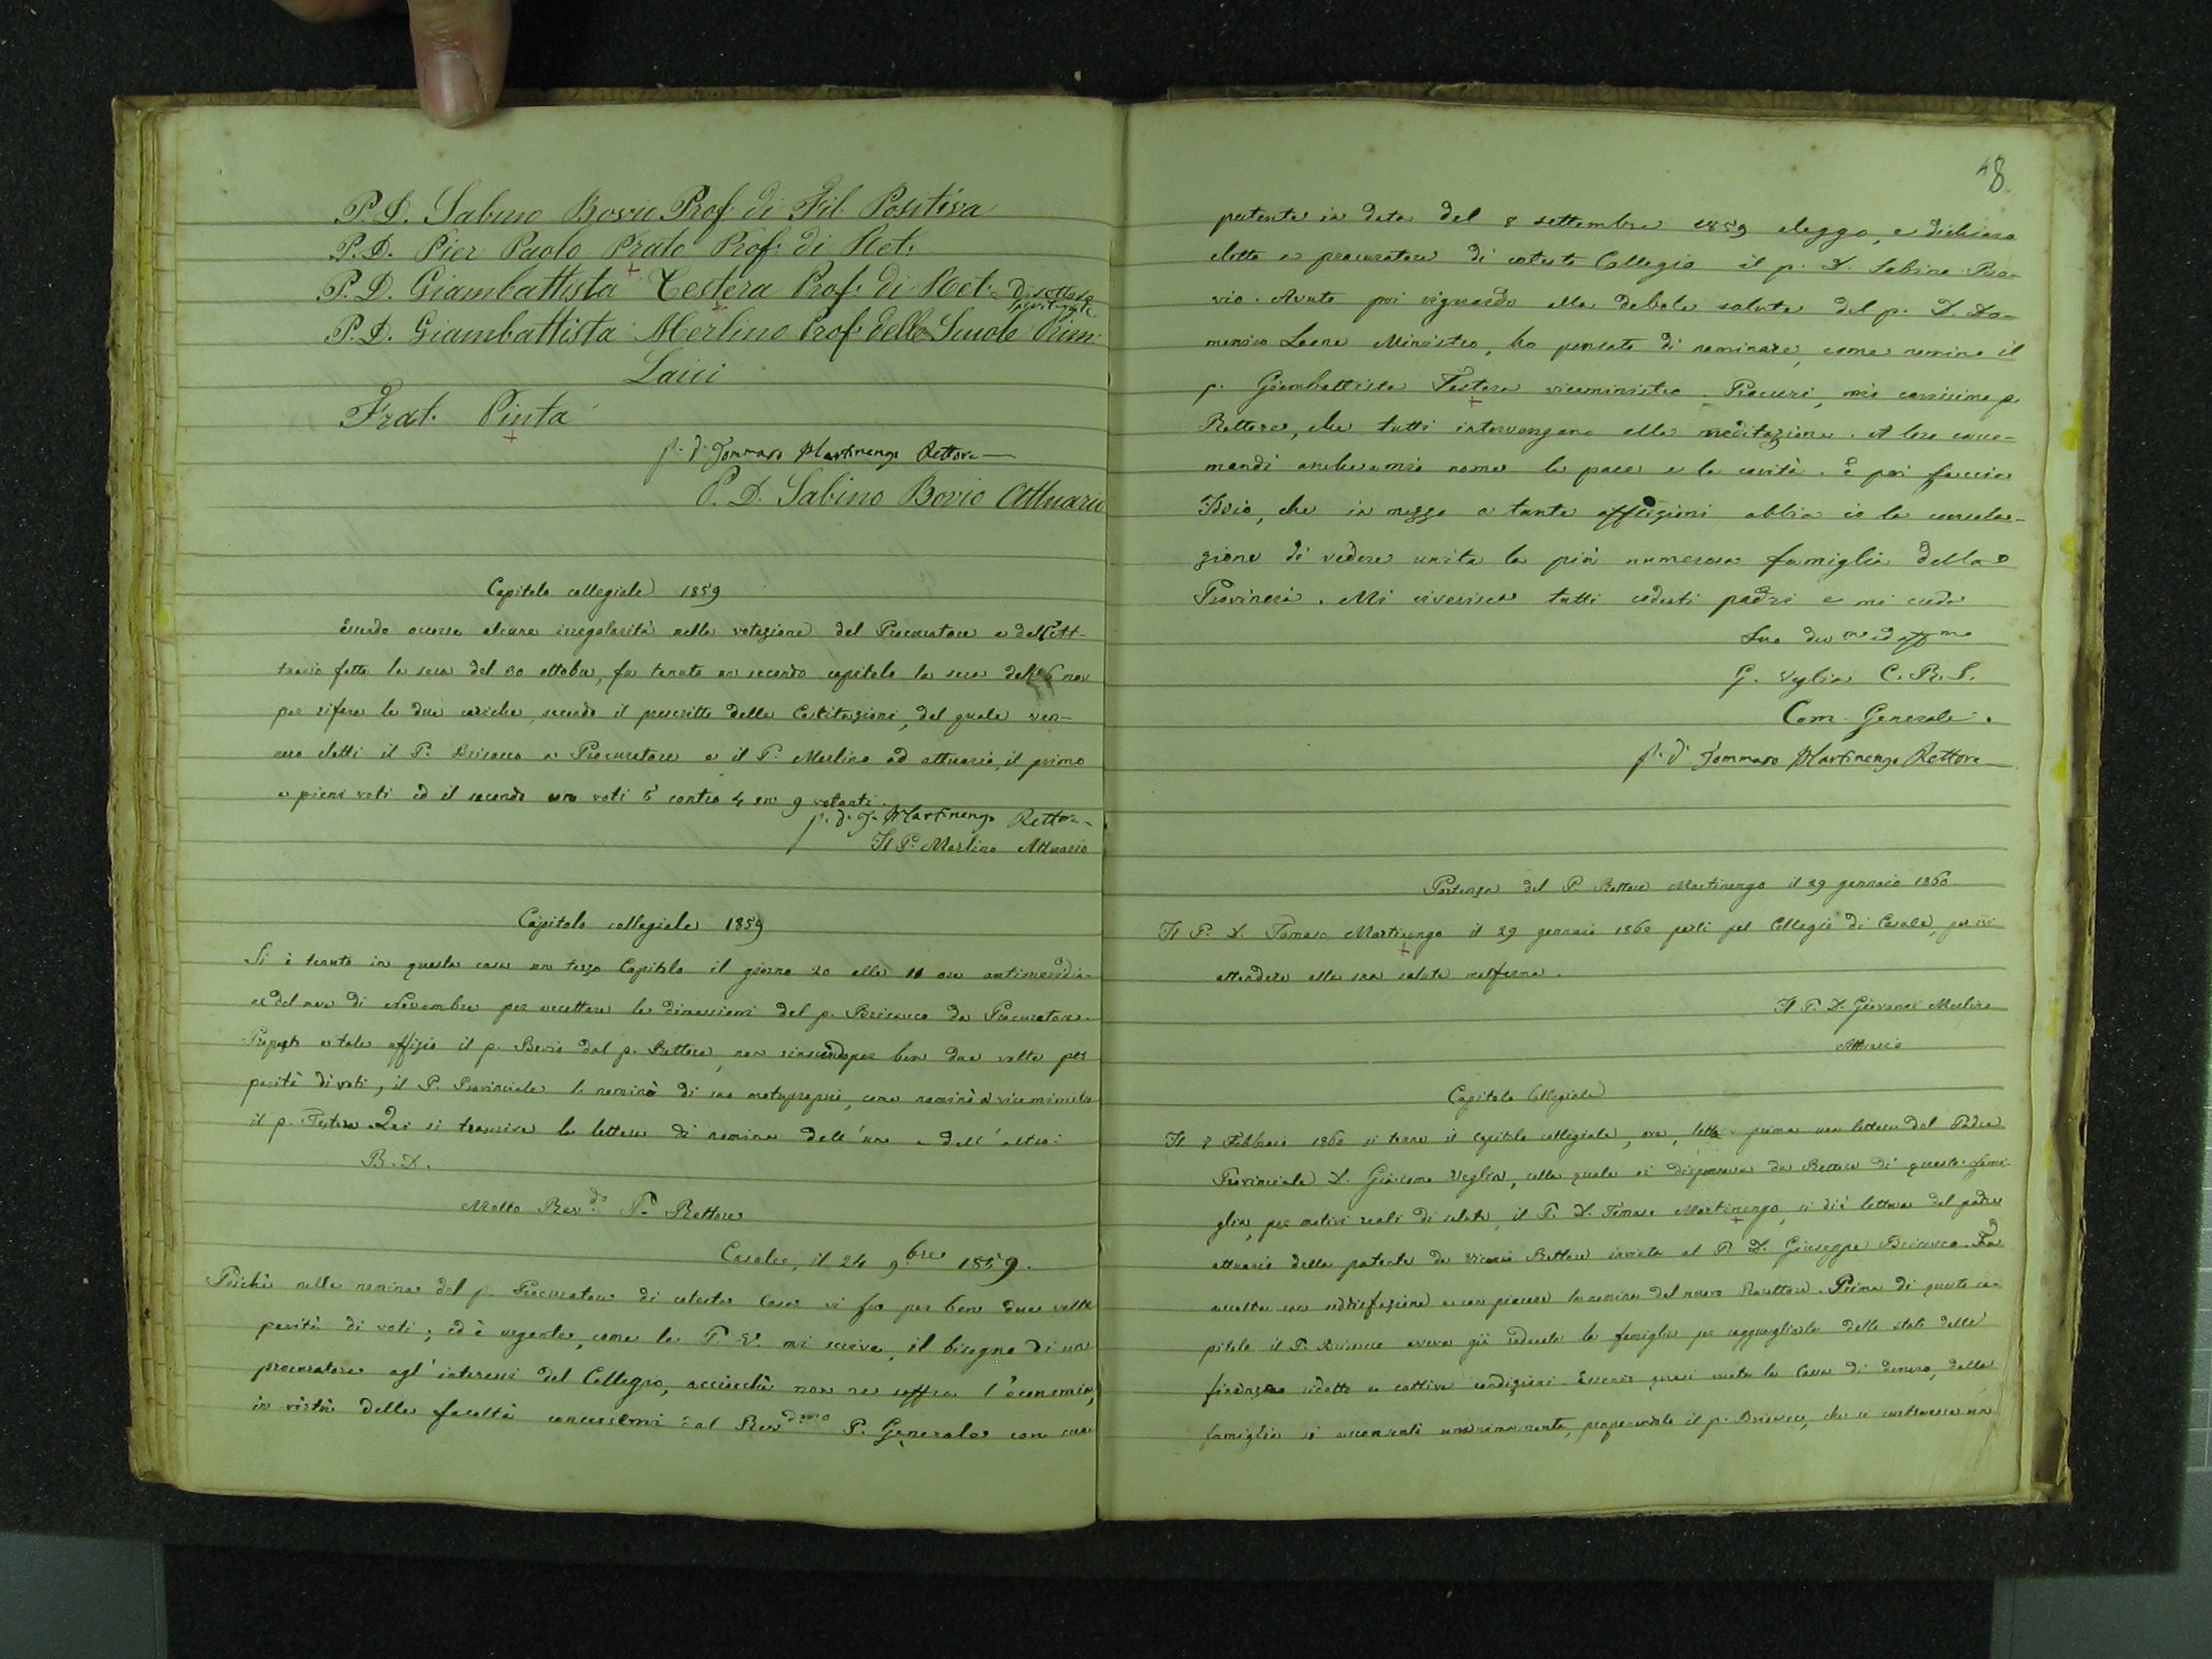 P. D. Sabino Bovio Prof. di Fil. Positiva
P. D. Pier Paolo Prato Prof. di Ret.
P. D. Giambattista Testera Prof. di Ret.
P. D. Giambattista Merlino Prof. delle Scuole Prim.
Laici
Frat. Pinta
p. d. Tommaso Martinengo Rettore
P. D. Sabino Bovio Attuario
Capitolo collegiale 1859
Essendo occorsa alcuna irregolarità nella votazione del Procuratore e dell'Att-
tuario fatta la sera del 30 ottobre, fu tenuto un secondo capitolo la sera nov
per rifare le due cariche, secondo il prescritto delle Costituzioni, del quale ven-
nero eletti il P. Bricacco a Procuratore e il P. Merlino ad attuario, il primo
a pieni voti ed il secondo voti 5 contro 4 su 9 votanti.
p. d. T. Martinengo Rettore
Il P. Merlino Attuario
Capitolo collegiale 1859
Si è tenuto in questa casa un terzo Capitolo il giorno 20 alle 11 ore antimeridia-
ne del mese di Novembre per accettare le dimissioni del p. Bricacco da Procuratore.
Proposto a tale uffizio il p. Bovio dal p. Rettore, non riuscendo per ben due volte per
parità di voti, il P. Provinciale lo nominò di suo motuproprio, come nominò a viceministro
il p. Testera. Qui si trascrive la lettera di nomina dell'uno e dell'altro:
B. D.
Molto Rev.do P. Rettore
Casale, il 24 9bre 1859.
Poichè nella nomina del p. Procuratore di cotesta Casa vi fu per ben due volte
parità di voti; ed è urgente, come la P. V. mi scrive, il bisogno di un
procuratore agl'interessi del Collegio, acciocchè non ne soffra l'economia,
in virtù delle facoltà concessemi dal Rev.dmo P. Generale con sua
48.
patente in data del 8 settembre 1859 eleggo, e dichiaro
eletto a procuratore di cotesto Collegio il p. D. Sabino Bo-
vio. Avuto poi riguardo alla debole salute del p. D. Do-
menico Leone Ministro, ho pensato di nominare, come nomino il
p. Giambattista Testera viceministro. Procuri, mio carissimo p.
Rettore, che tutti intervengano alla meditazione. A loro racco-
mandi anche a mio nome la pace e la carità. E poi faccia
Iddio, che in mezzo a tante afflizioni abbia io la consola-
zione di vedere unita la più numerosa famiglia della
Provincia. Mi riverisca tutti codesti padri e mi creda
Suo dev.mo ed aff.mo
G. Veglia C. R. S.
Com. Generale.
p. d. Tommaso Martinengo Rettore
Partenza del P. Rettore Martinengo il 29 gennaio 1860.
Il P. D. Tomaso Martinengo il 29 gennaio 1860 partì pel Collegio di Casale, per ivi
attendere alla sua salute malferma.
Il P. D. Giovanni Merlino
Attuario
Capitolo Collegiale
Il 7 Febbraio 1860 si tenne il capitolo collegiale, ove, letta prima una lettera del Padre
Provinciale D. Giacomo Veglia, colla quale si dispensava da Rettore di questa fami-
glia, per motivi reali di salute, il P. D. Tomaso Martinengo, si diè lettura dal padre
attuario della patente da Vicario Rettore inviata al P. D. Giuseppe Bricacco. Fu
accolta con soddisfazione e con piacere la nomina del nuovo Rettore. Prima di questo ca-
pitolo il P. Bricacco aveva già radunato la famiglia per ragguagliarla dello stato delle
finanze ridotte a cattive condizioni. Essendo quasi vuota la Cassa di denaro, dalla
famiglia si acconsentì unanimemente, proponendolo il p. Bricacco, che si contraesse un